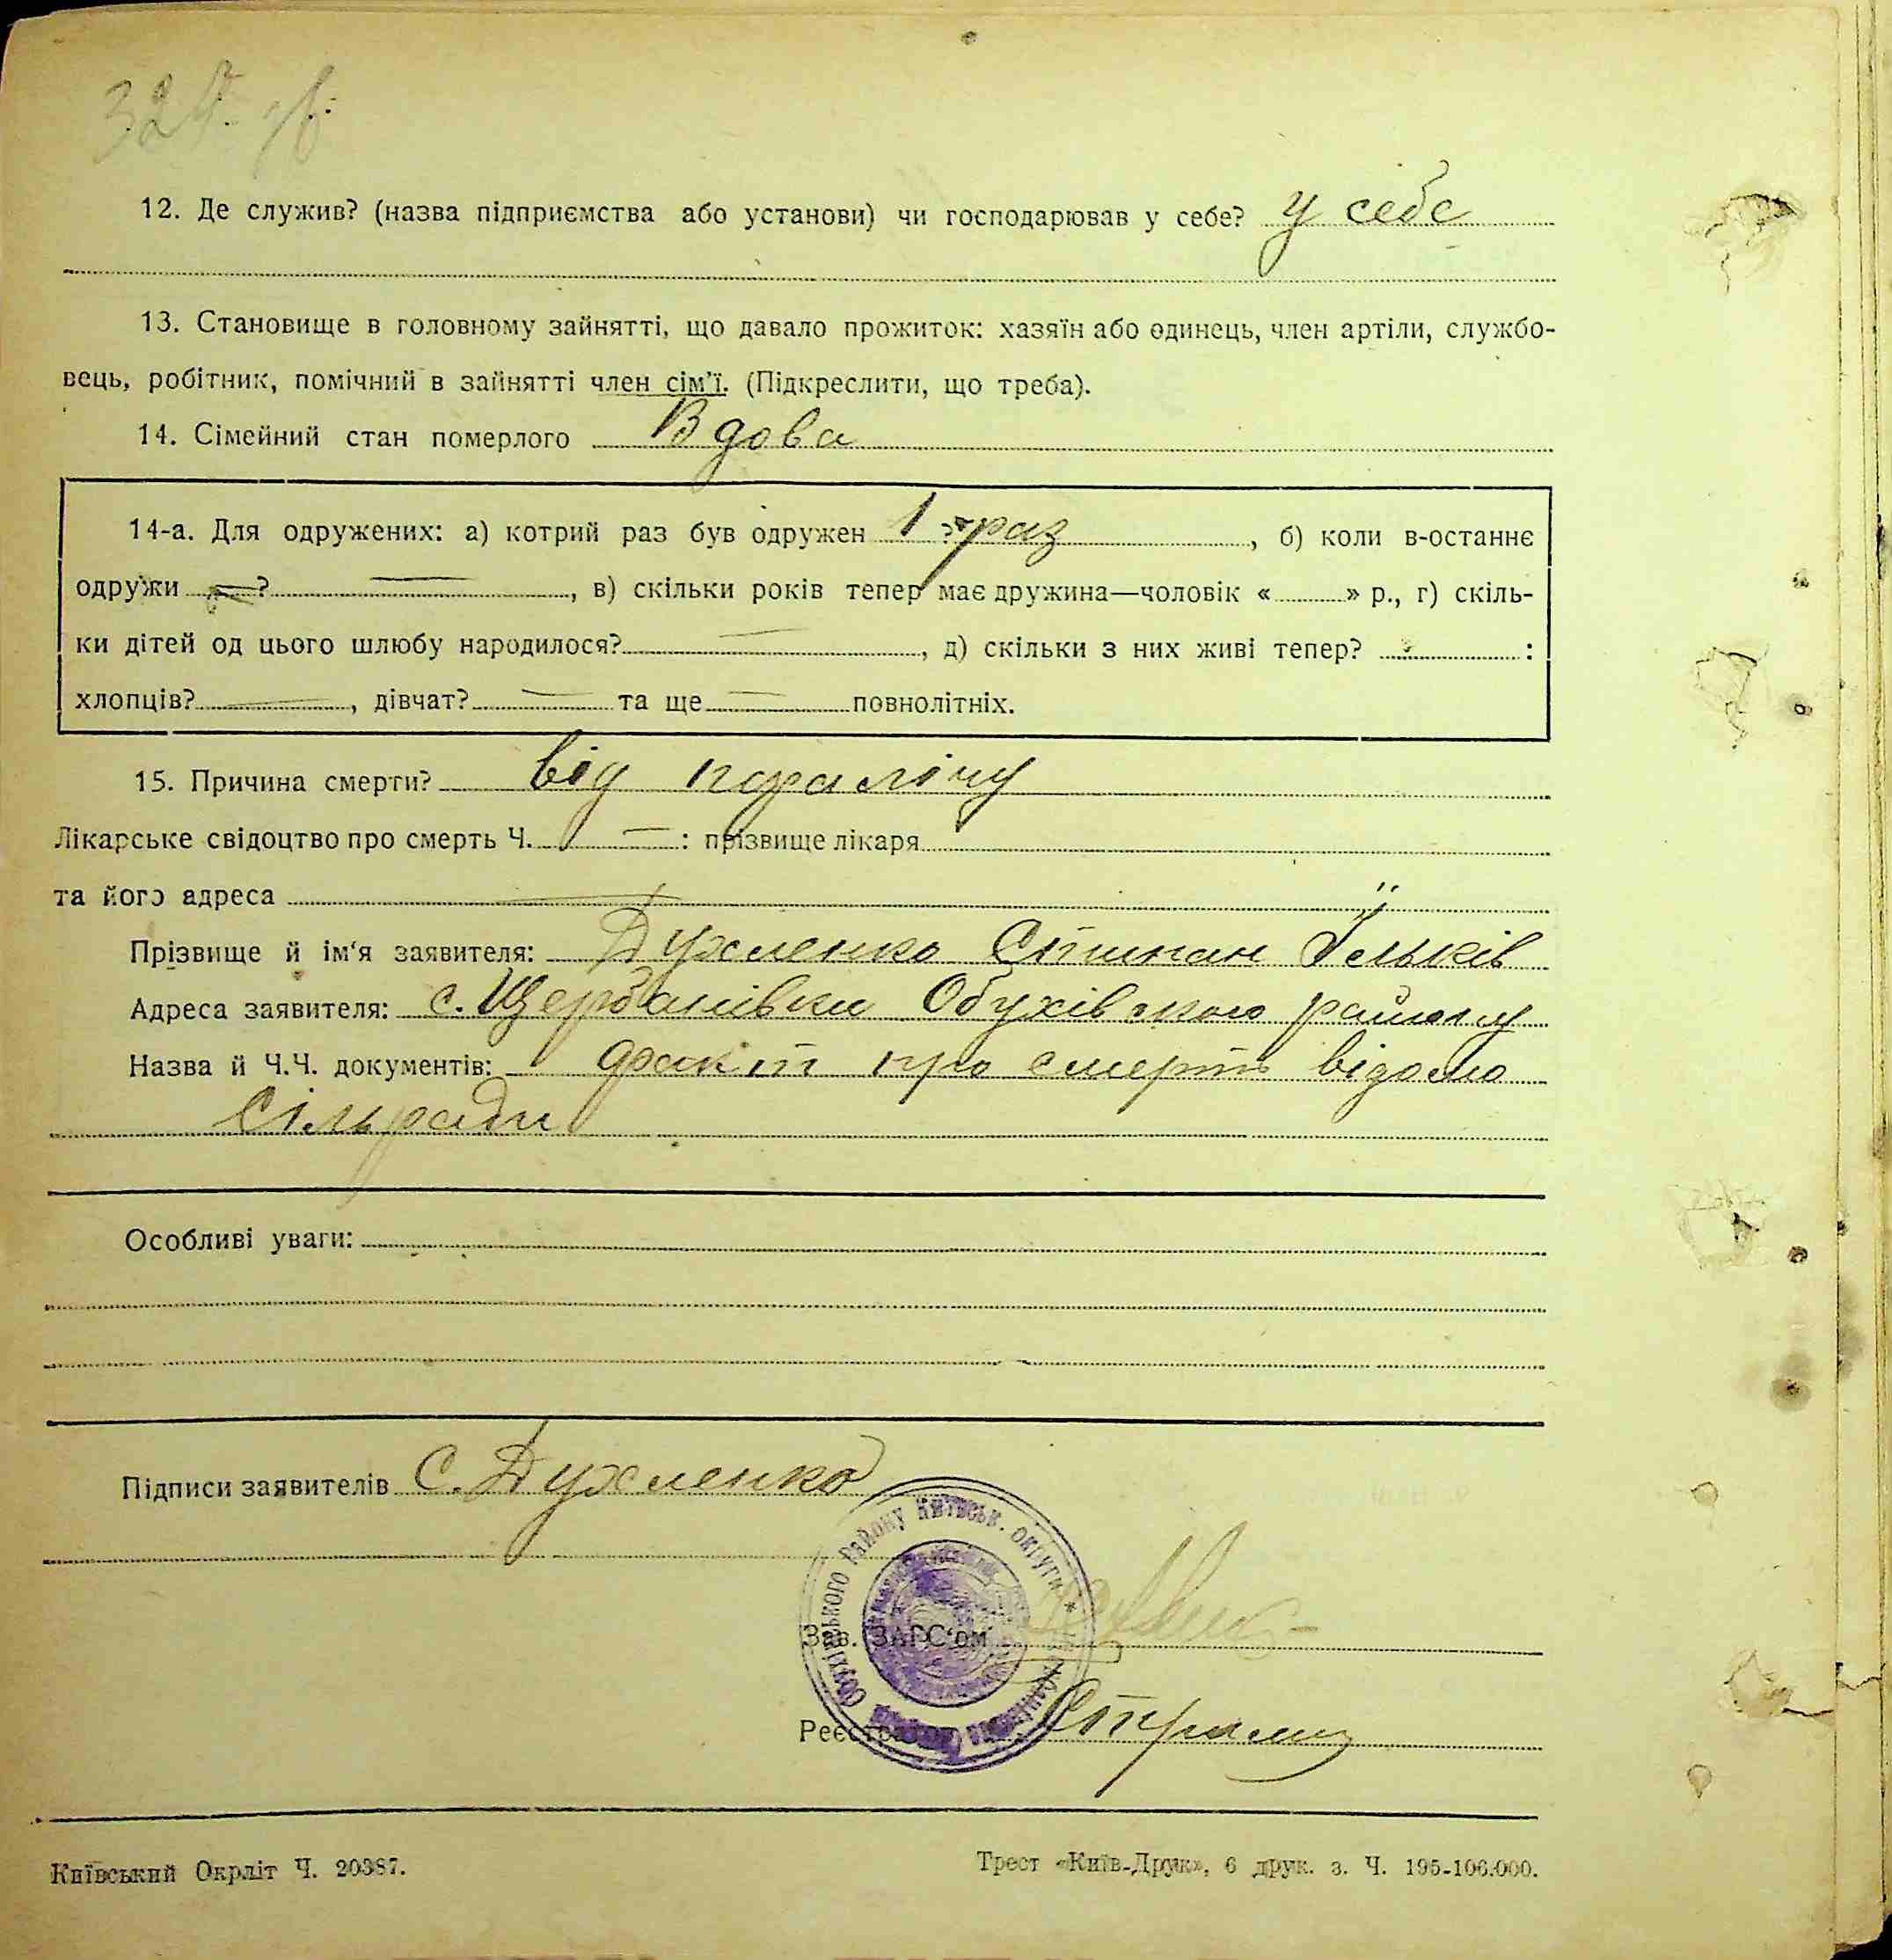 324 зв.
12. Де служив? (назва підприємства або установи) чи господарював у себе? у себе
13. Становище в головному зайнятті, що давало прожиток: хазяїн або одинець, член артіли, службо-
вець, робітник, помічний в зайнятті член сім'ї. (Підкреслити, що треба).
14. Сімейний стан померлого Вдова
14-а. Для одружених: а) котрий раз був одружен 1 раз, б) коли в-останнє
одружи ?, в) скільки років тепер має дружина—чоловік « » р., г) скіль-
ки дітей од цього шлюбу народилося? —, д) скільки з них живі тепер? :
хлопців? —, дівчат? — та ще — повнолітніх.
15. Причина смерти? від паралічу
Лікарське свідоцтво про смерть Ч. — : прізвище лікаря
та його адреса —
Прізвище й ім'я заявителя: Духленко Степан Їльків
Адреса заявителя: с. Щербанівки Обухівського району
Назва й Ч.Ч. документів: факт про смерть відомо
Сільради
Особливі уваги:
Підписи заявителів С. Духленко
Обухівського району Київськ. округи *
Зав. ЗАГС'ом
Реєстра
Київський Окрліт Ч. 20387.
Трест «Київ-Друк», 6 друк. з. Ч. 195-106.000.